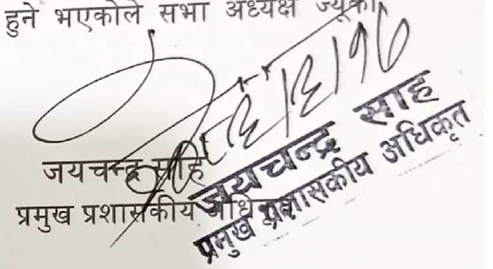 हुने भएकोले सभा अध्यक्ष ज्यूको
जयचन्द्र साह
प्रमुख प्रशासकीय अधिकृत
जयचन्द्र साह
प्रमुख प्रशासकीय अधिकृत